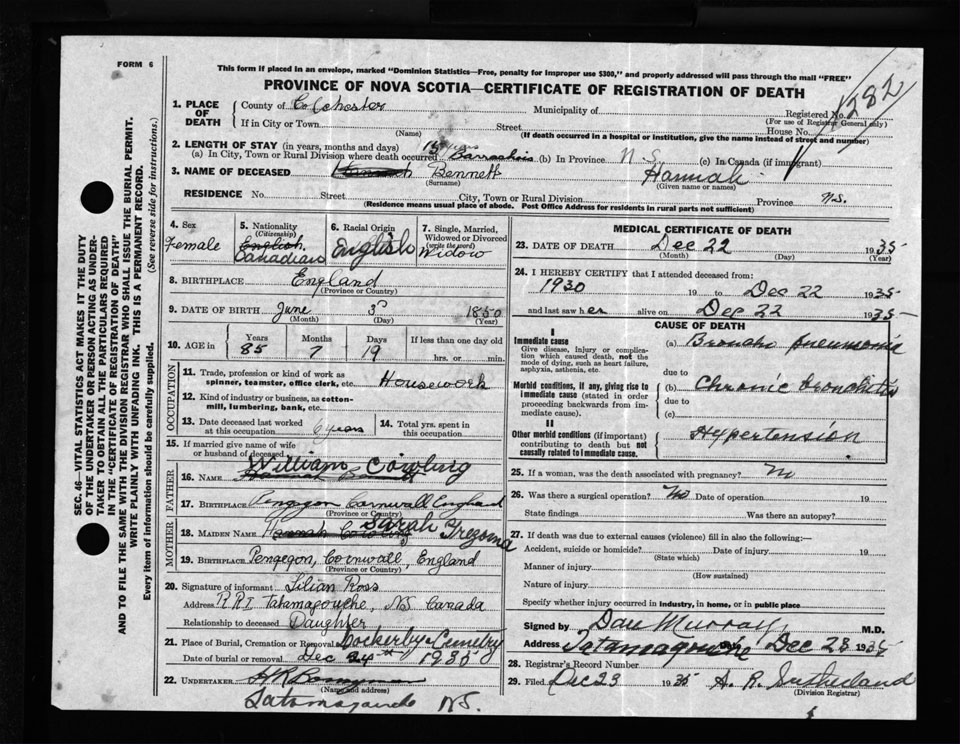 FORM 6
This form if placed in an envelope, marked "Dominion Statistics—Free, penalty for improper use $300," and properly addressed will pass through the mail "FREE"
PROVINCE OF NOVA SCOTIA—CERTIFICATE OF REGISTRATION OF DEATH
1. PLACE OF DEATH
County of Colchester Municipality of Registered No. 1282
(For use of Registrar General only)
If in City or Town Street House No.
(Name) (If death occurred in a hospital or institution, give the name instead of street and number)
2. LENGTH OF STAY (in years, months and days)
(a) In City, Town or Rural Division where death occurred 15 years Barrachois (b) In Province N.S. (c) In Canada (if immigrant)
3. NAME OF DECEASED Hannah Bennett Hannah
(Surname) (Given name or names)
RESIDENCE No. Street City, Town or Rural Division Province N.S.
(Residence means usual place of abode. Post Office Address for residents in rural parts not sufficient)
SEC. 46—VITAL STATISTICS ACT MAKES IT THE DUTY
OF THE UNDERTAKER OR PERSON ACTING AS UNDER-
TAKER TO OBTAIN ALL THE PARTICULARS REQUIRED
IN THE "CERTIFICATE OF REGISTRATION OF DEATH"
AND TO FILE THE SAME WITH THE DIVISION REGISTRAR WHO SHALL ISSUE THE BURIAL PERMIT.
WRITE PLAINLY WITH UNFADING INK. THIS IS A PERMANENT RECORD.
Every item of information should be carefully supplied. (See reverse side for instructions.)
4. Sex
Female
5. Nationality
(Citizenship)
English
Canadian
6. Racial Origin
English
7. Single, Married,
Widowed or Divorced
(write the word)
Widow
8. BIRTHPLACE England
(Province or Country)
9. DATE OF BIRTH June 3 1850
(Month) (Day) (Year)
10. AGE in Years Months Days If less than one day old
85 7 19 hrs. or min.
OCCUPATION
11. Trade, profession or kind of work as
spinner, teamster, office clerk, etc. Housework
12. Kind of industry or business, as cotton-
mill, lumbering, bank, etc.
13. Date deceased last worked
at this occupation 6 years
14. Total yrs. spent in
this occupation
15. If married give name of wife
or husband of deceased
FATHER
William Cowling
16. NAME
17. BIRTHPLACE Pengegon Cornwall England
(Province or Country)
MOTHER
18. MAIDEN NAME Hannah Cowling Sarah Tregoma
19. BIRTHPLACE Pengegon, Cornwall, England
(Province or Country)
20. Signature of informant Lilian Ross
Address R R 1 Tatamagouche, NS Canada
Relationship to deceased Daughter
21. Place of Burial, Cremation or Removal Dockerby Cemetry
Date of burial or removal Dec 24th 1935
22. UNDERTAKER
(Name and address)
Tatamagouche N.S.
MEDICAL CERTIFICATE OF DEATH
23. DATE OF DEATH Dec 22 1935
(Month) (Day) (Year)
24. I HEREBY CERTIFY that I attended deceased from:
1930 19 to Dec 22 1935
and last saw her alive on Dec 22 1935
CAUSE OF DEATH
I
Immediate cause
Give disease, injury or complica-
tion which caused death, not the
mode of dying, such as heart failure,
asphyxia, asthenia, etc.
(a) Broncho pneumonia
due to
Morbid conditions, if any, giving rise to
immediate cause (stated in order
proceeding backwards from im-
mediate cause).
(b) Chronic bronchitis
due to
(c)
II
Other morbid conditions (if important)
contributing to death but not
causally related to immediate cause.
Hypertension
25. If a woman, was the death associated with pregnancy? No
26. Was there a surgical operation? No Date of operation 19
State findings Was there an autopsy?
27. If death was due to external causes (violence) fill in also the following:—
Accident, suicide or homicide? Date of injury 19
(State which)
Manner of injury
(How sustained)
Nature of injury
Specify whether injury occurred in industry, in home, or in public place
Signed by Dan Murray M.D.
Address Tatamagouche Dec 23 1935
28. Registrar's Record Number
29. Filed Dec 23 1935 A. R. Sutherland
(Division Registrar)